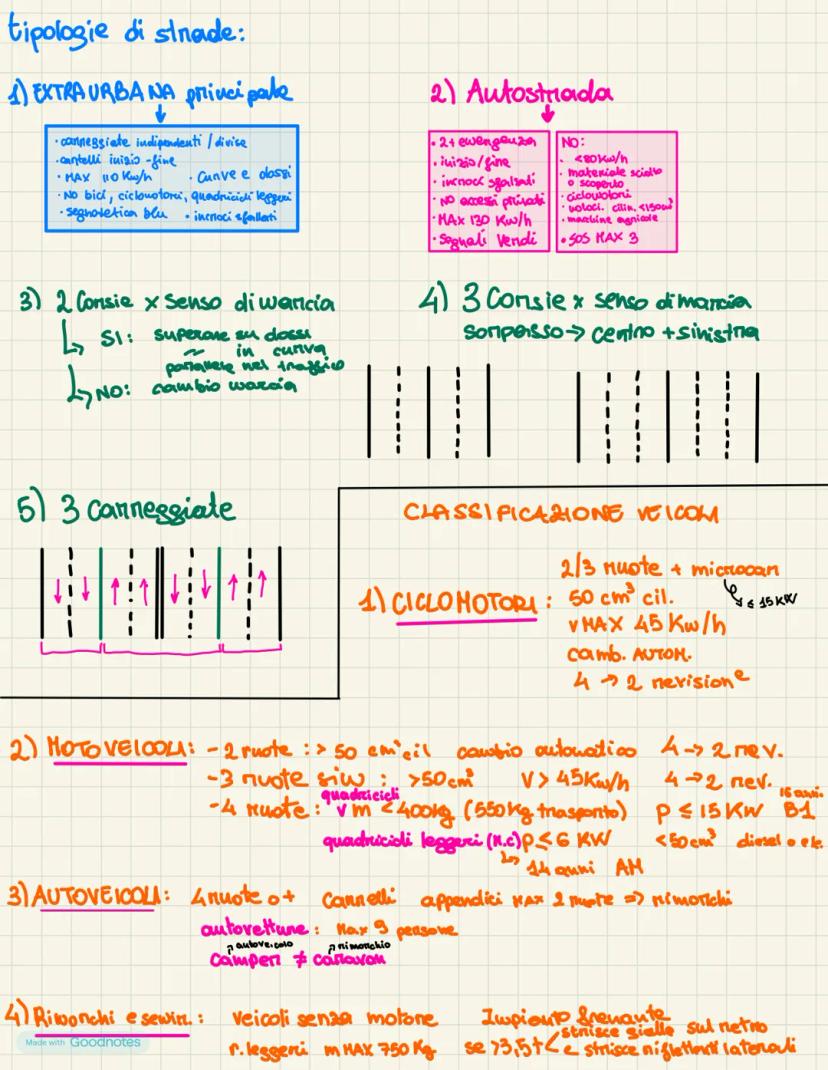 tipologie di strade:
1) EXTRAURBANA principale
· carreggiate indipendenti / divise
· cartelli inizio - fine
· MAX 110 Km/h
· Curve e dossi
· NO bici, ciclomotori, quadricicli leggeri
· segnaletica blu
· incroci sfalsati
2) Autostrada
· 2+ emergenza
· inizio/fine
· incroci sfalsati
· NO accessi privati
· MAX 130 Km/h
· Segnali Verdi
NO:
· <80Km/h
· materiale sciolto
o scoperto
· ciclomotori
· motoci. cilin. <150cm³
· macchine agricole
· SOS MAX 3
3) 2 Corsie x senso di marcia
SI: superare su dossi
" in curva
parallele nel traffico
NO: cambio marcia
4) 3 Corsie x senso di marcia
sorpasso → centro + sinistra
5) 3 carreggiate
CLASSIFICAZIONE VEICOLI
1) CICLOMOTORI:
2/3 ruote + microcar
≤ 15 KW
50 cm³ cil.
v MAX 45 Km/h
camb. AUTOM.
4 → 2 revisione
2) MOTOVEICOLI: - 2 ruote : > 50 cm³ cil cambio automatico 4 → 2 rev.
- 3 ruote sim : >50cm³ V > 45Km/h 4 → 2 rev.
- 4 ruote: quadricicli m < 400kg (550Kg trasporto) P ≤ 15 KW B1 16 anni.
quadricicli leggeri (M.C) P ≤ 6 KW <50cm³ diesel o ele.
14 anni AM
3) AUTOVEICOLI: 4 ruote o + Carrelli appendici MAX 2 ruote => rimorchi
autovetture : Max 9 persone
autoveicolo rimorchio
camper ≠ caravan
4) Rimorchi e semirr.: veicoli senza motore Impianto frenante
strisce gialle sul retro
r. leggeri m MAX 750 Kg se >3,5t < e strisce riflettenti laterali
Made with Goodnotes